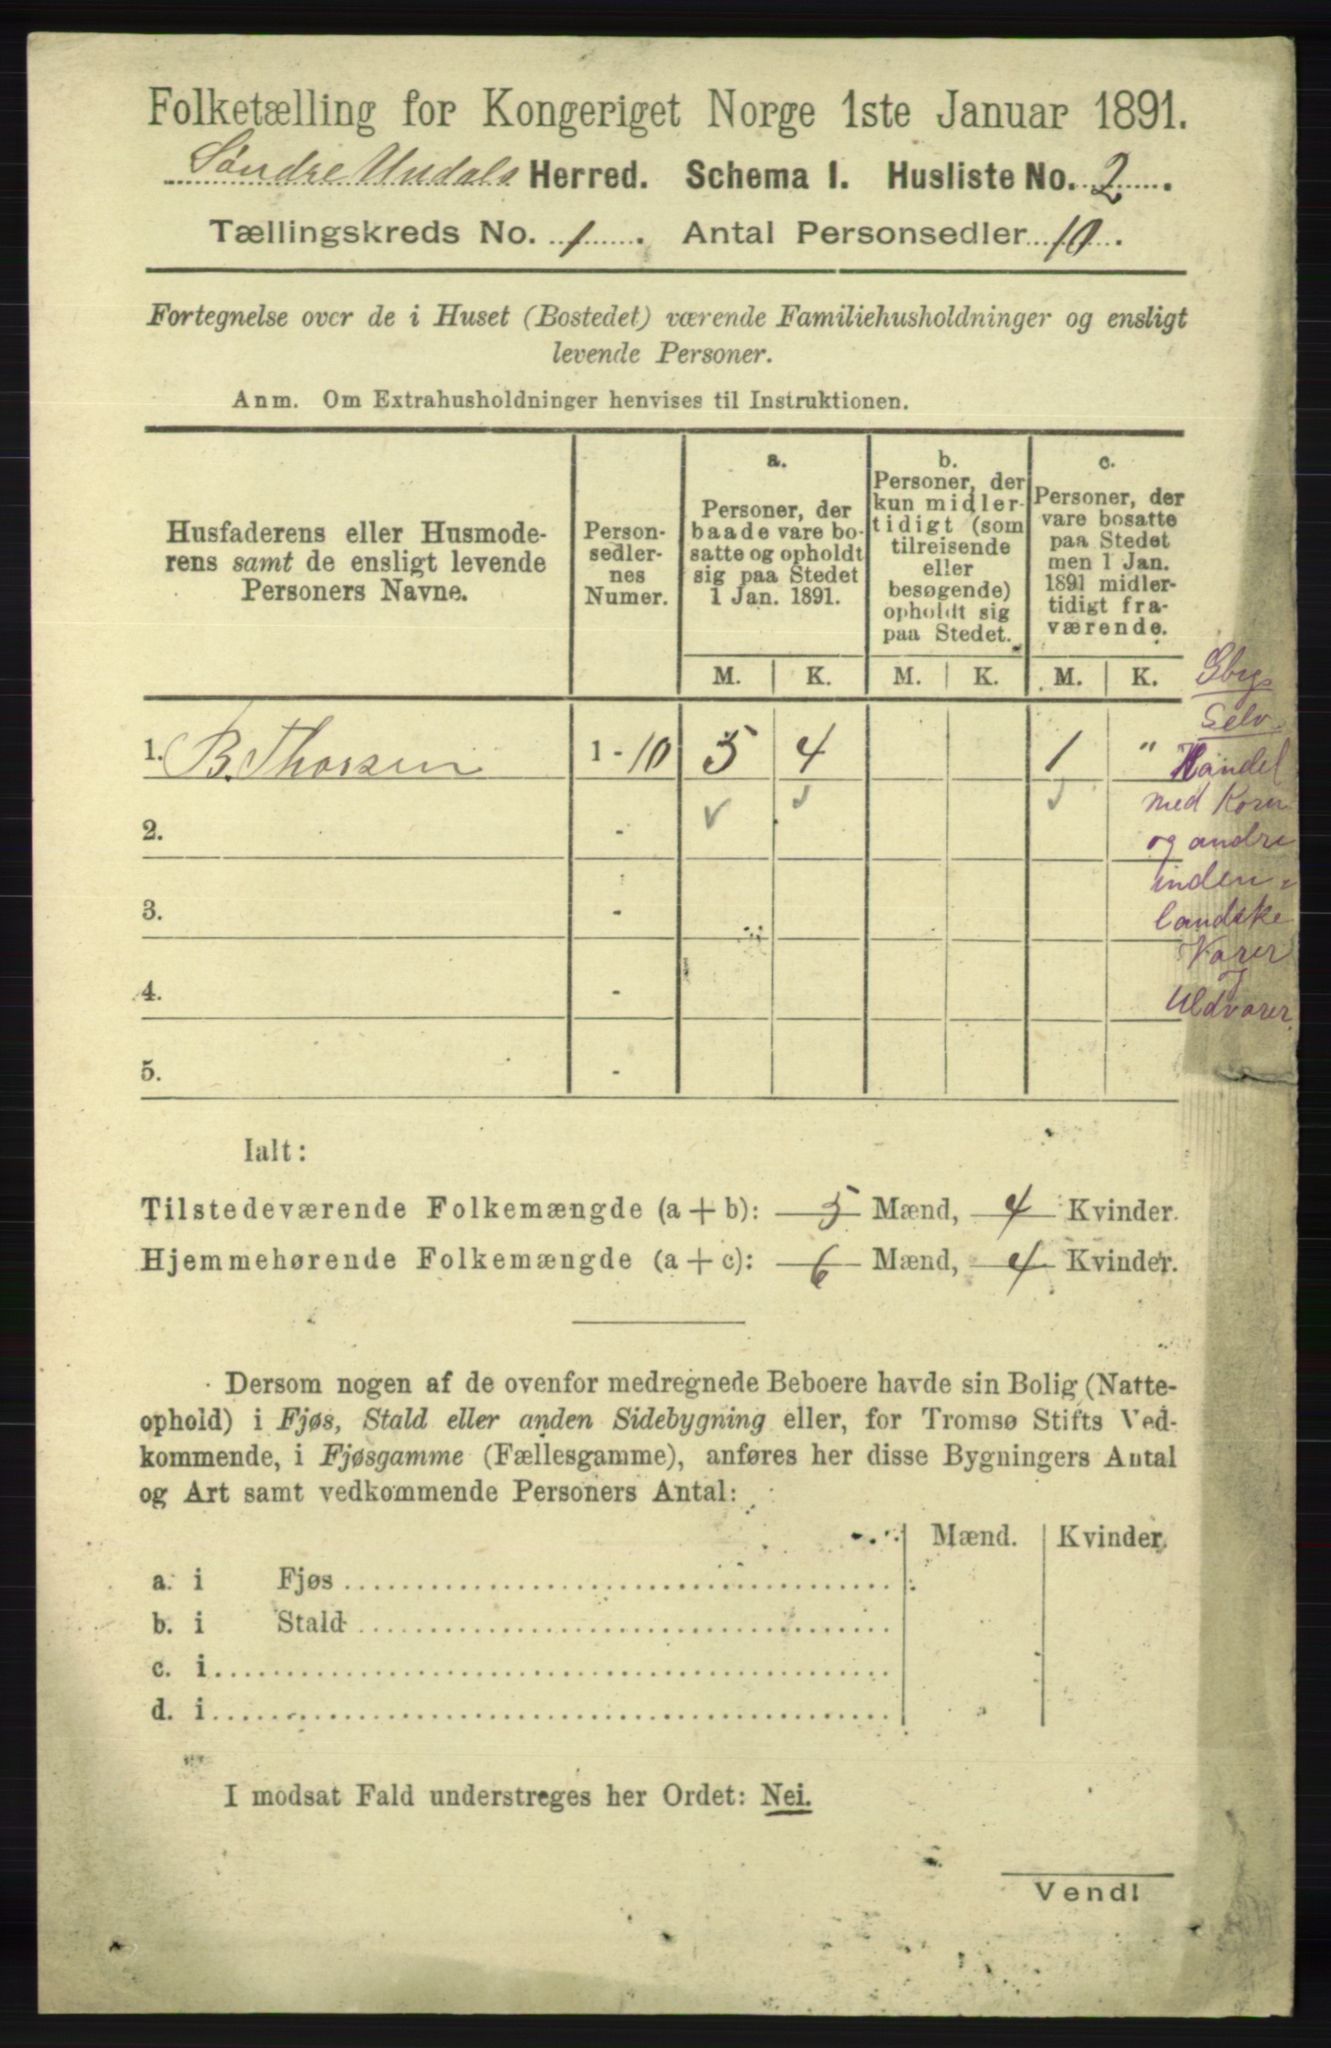 Folketælling for Kongeriget Norge 1ste Januar 1891.
Søndre Undals Herred. Schema I. Husliste No. 2.
Tællingskreds No. 1. Antal Personsedler 10.
Fortegnelse over de i Huset (Bostedet) værende Familiehusholdninger og ensligt
levende Personer.
Anm. Om Extrahusholdninger henvises til Instruktionen.
Husfaderens eller Husmode-
rens samt de ensligt levende
Personers Navne.
Person-
sedler-
nes
Numer.
a.
Personer, der
baade vare bo-
satte og opholdt
sig paa Stedet
1 Jan. 1891.
b.
Personer, der
kun midler-
tidigt (som
tilreisende
eller
besøgende)
opholdt sig
paa Stedet.
c.
Personer, der
vare bosatte
paa Stedet
men 1 Jan.
1891 midler-
tidigt fra-
værende.
M. K. M. K. M. K.
1. B. Thorsen 1 - 10 5 4 1 "
2. -
3. -
4. -
5. -
Selv.
Handel
med Korn
og andre
inden-
landske
Varer
og
Uldvarer.
Ialt:
Tilstedeværende Folkemængde (a + b): 5 Mænd, 4 Kvinder.
Hjemmehørende Folkemængde (a + c): 6 Mænd, 4 Kvinder.
Dersom nogen af de ovenfor medregnede Beboere havde sin Bolig (Natte-
ophold) i Fjøs, Stald eller anden Sidebygning eller, for Tromsø Stifts Ved-
kommende, i Fjøsgamme (Fællesgamme), anføres her disse Bygningers Antal
og Art samt vedkommende Personers Antal:
Mænd. Kvinder.
a. i Fjøs
b. i Stald
c. i
d. i
I modsat Fald understreges her Ordet: Nei.
Vend!